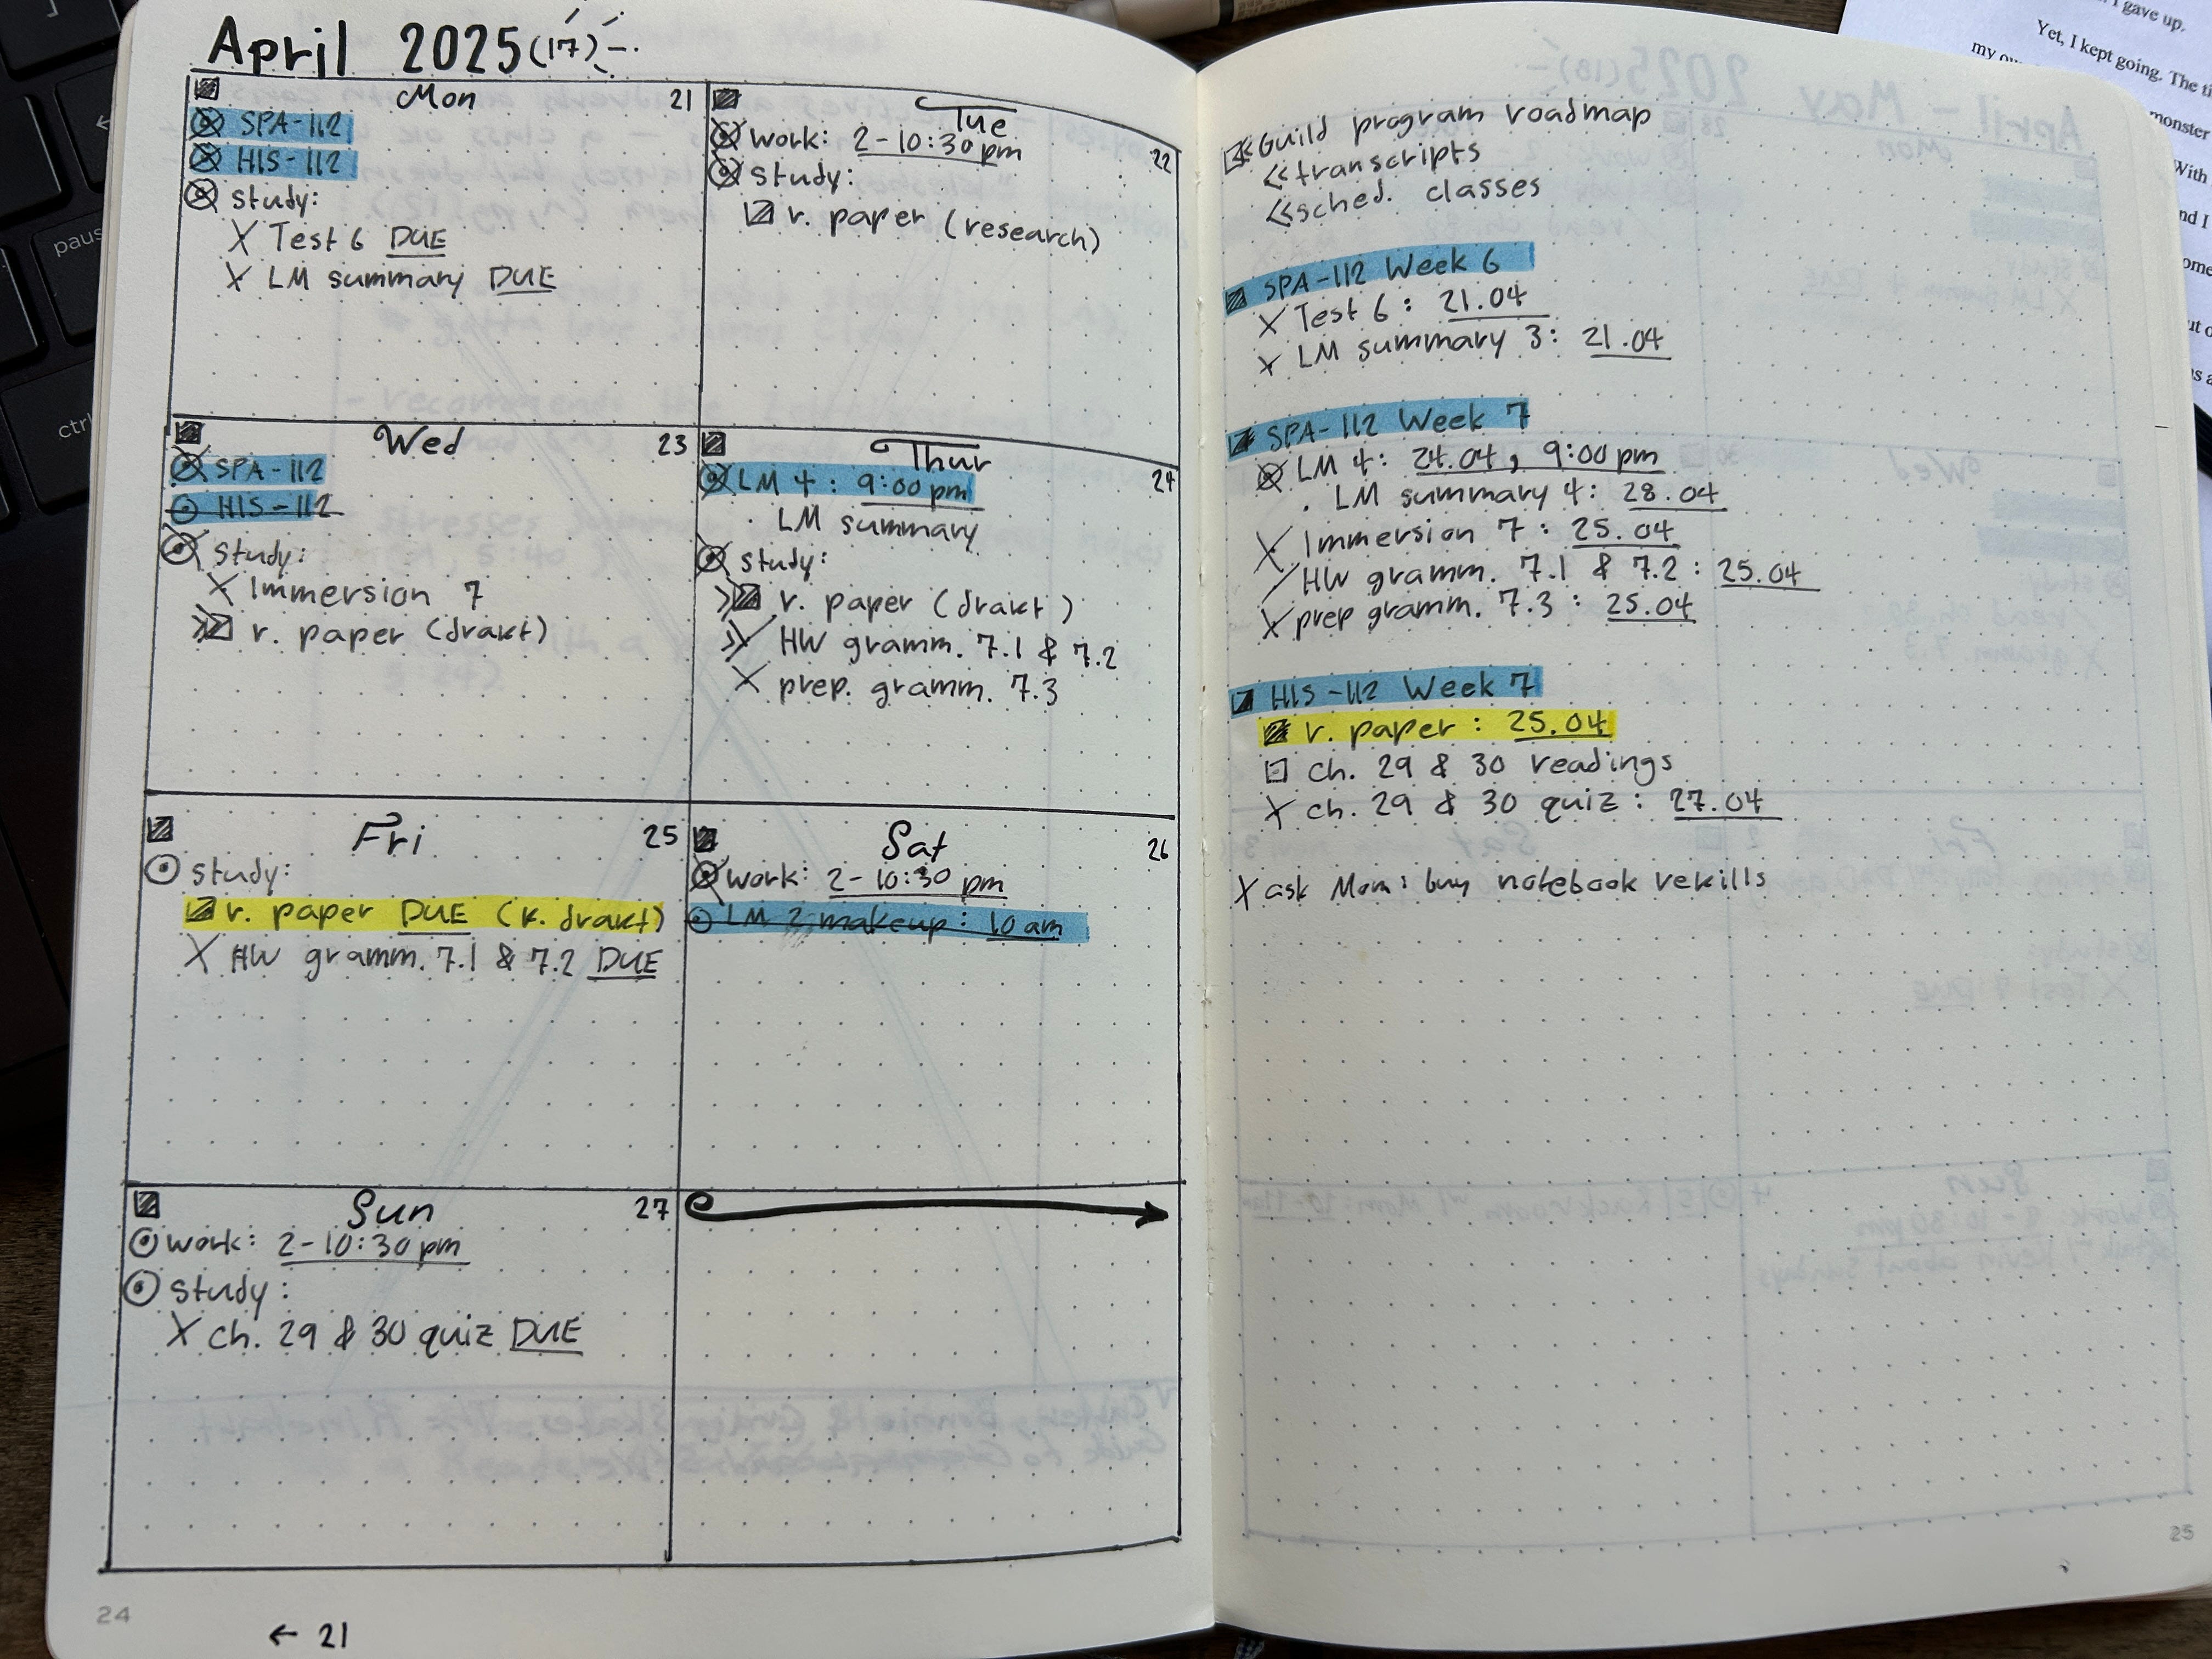 April 2025 (17)
Mon 21
SPA-112
HIS-112
study:
X Test 6 DUE
X LM summary DUE
Tue 22
work: 2-10:30 pm
study:
r. paper (research)
Wed 23
SPA-112
HIS-112
study:
X Immersion 7
>> r. paper (draft)
Thur 24
LM 4: 9:00 pm
. LM summary
study:
>> r. paper (draft)
>> HW gramm. 7.1 & 7.2
X prep. gramm. 7.3
Fri 25
study:
r. paper DUE (f. draft)
X HW gramm. 7.1 & 7.2 DUE
Sat 26
work: 2-10:30 pm
LM 2 makeup: 10 am
Sun 27
work: 2-10:30 pm
study:
X ch. 29 & 30 quiz DUE
24
← 21
Guild program roadmap
<< transcripts
<< sched. classes
SPA-112 Week 6
X Test 6: 21.04
X LM summary 3: 21.04
SPA-112 Week 7
LM 4: 24.04, 9:00 pm
. LM summary 4: 28.04
X Immersion 7: 25.04
/ HW gramm. 7.1 & 7.2: 25.04
X prep gramm. 7.3: 25.04
HIS-112 Week 7
r. paper: 25.04
ch. 29 & 30 readings
X ch. 29 & 30 quiz: 27.04
X ask Mom: buy notebook refills
25
I gave up.
Yet, I kept going. The
my
monster
With